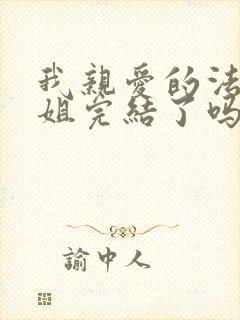 我親愛的法
姐完結了嗎
諭中人